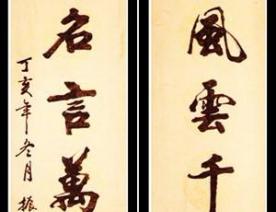 風雲千
名言萬
丁亥年冬月振